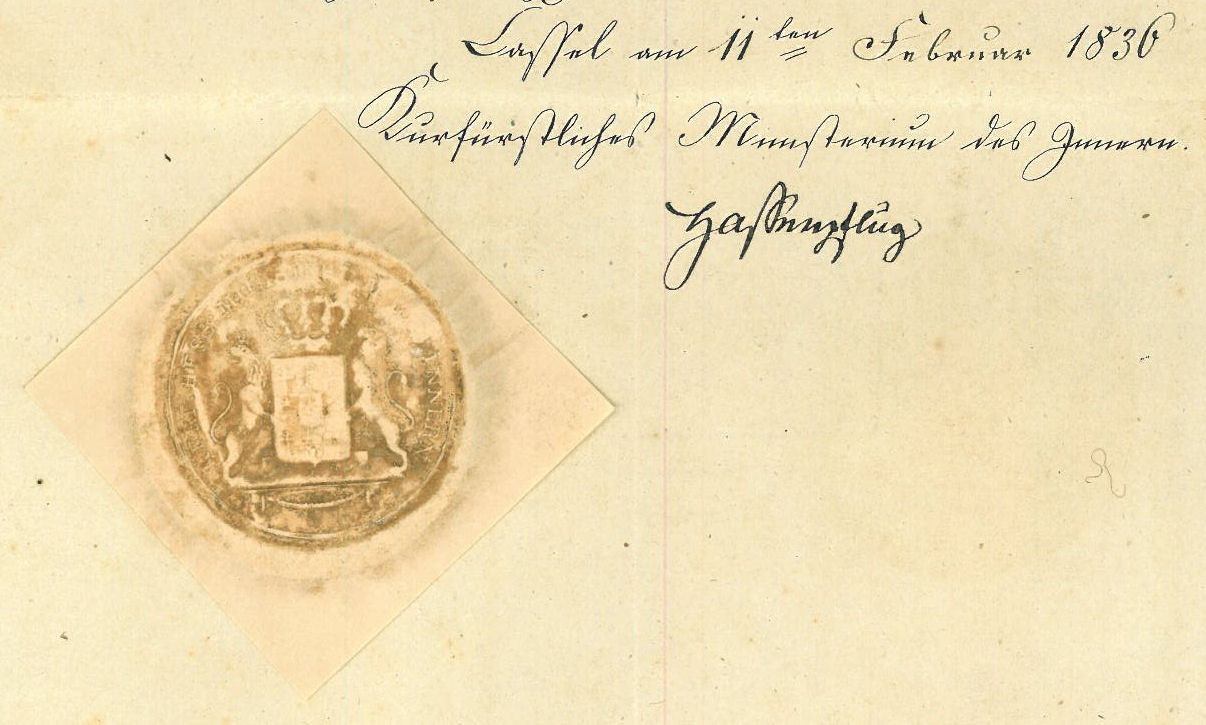 Cassel am 11ten Februar 1836
Kurfürstliches Ministerium des Innern.
Hassenpflug
INNERN